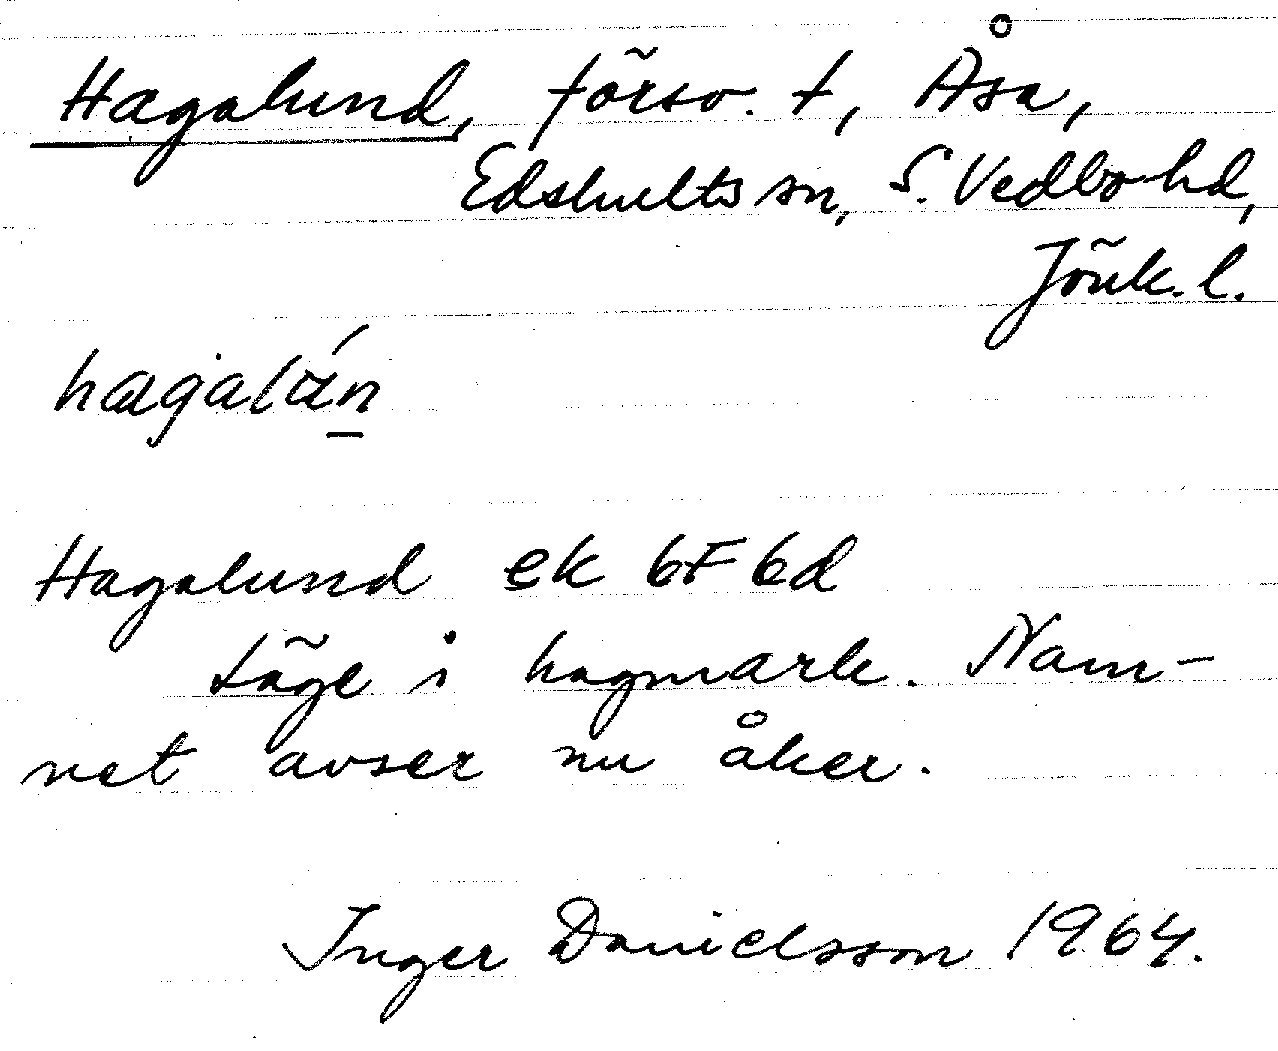 Hagalund, försv. t, Åsa,
Edshults sn, S. Vedbo hd,
Jönk. l.
Hagalund ek 6F 6d
Läge i hagmark. Nam-
net avser nu åker.
Inger Danielsson 1964.